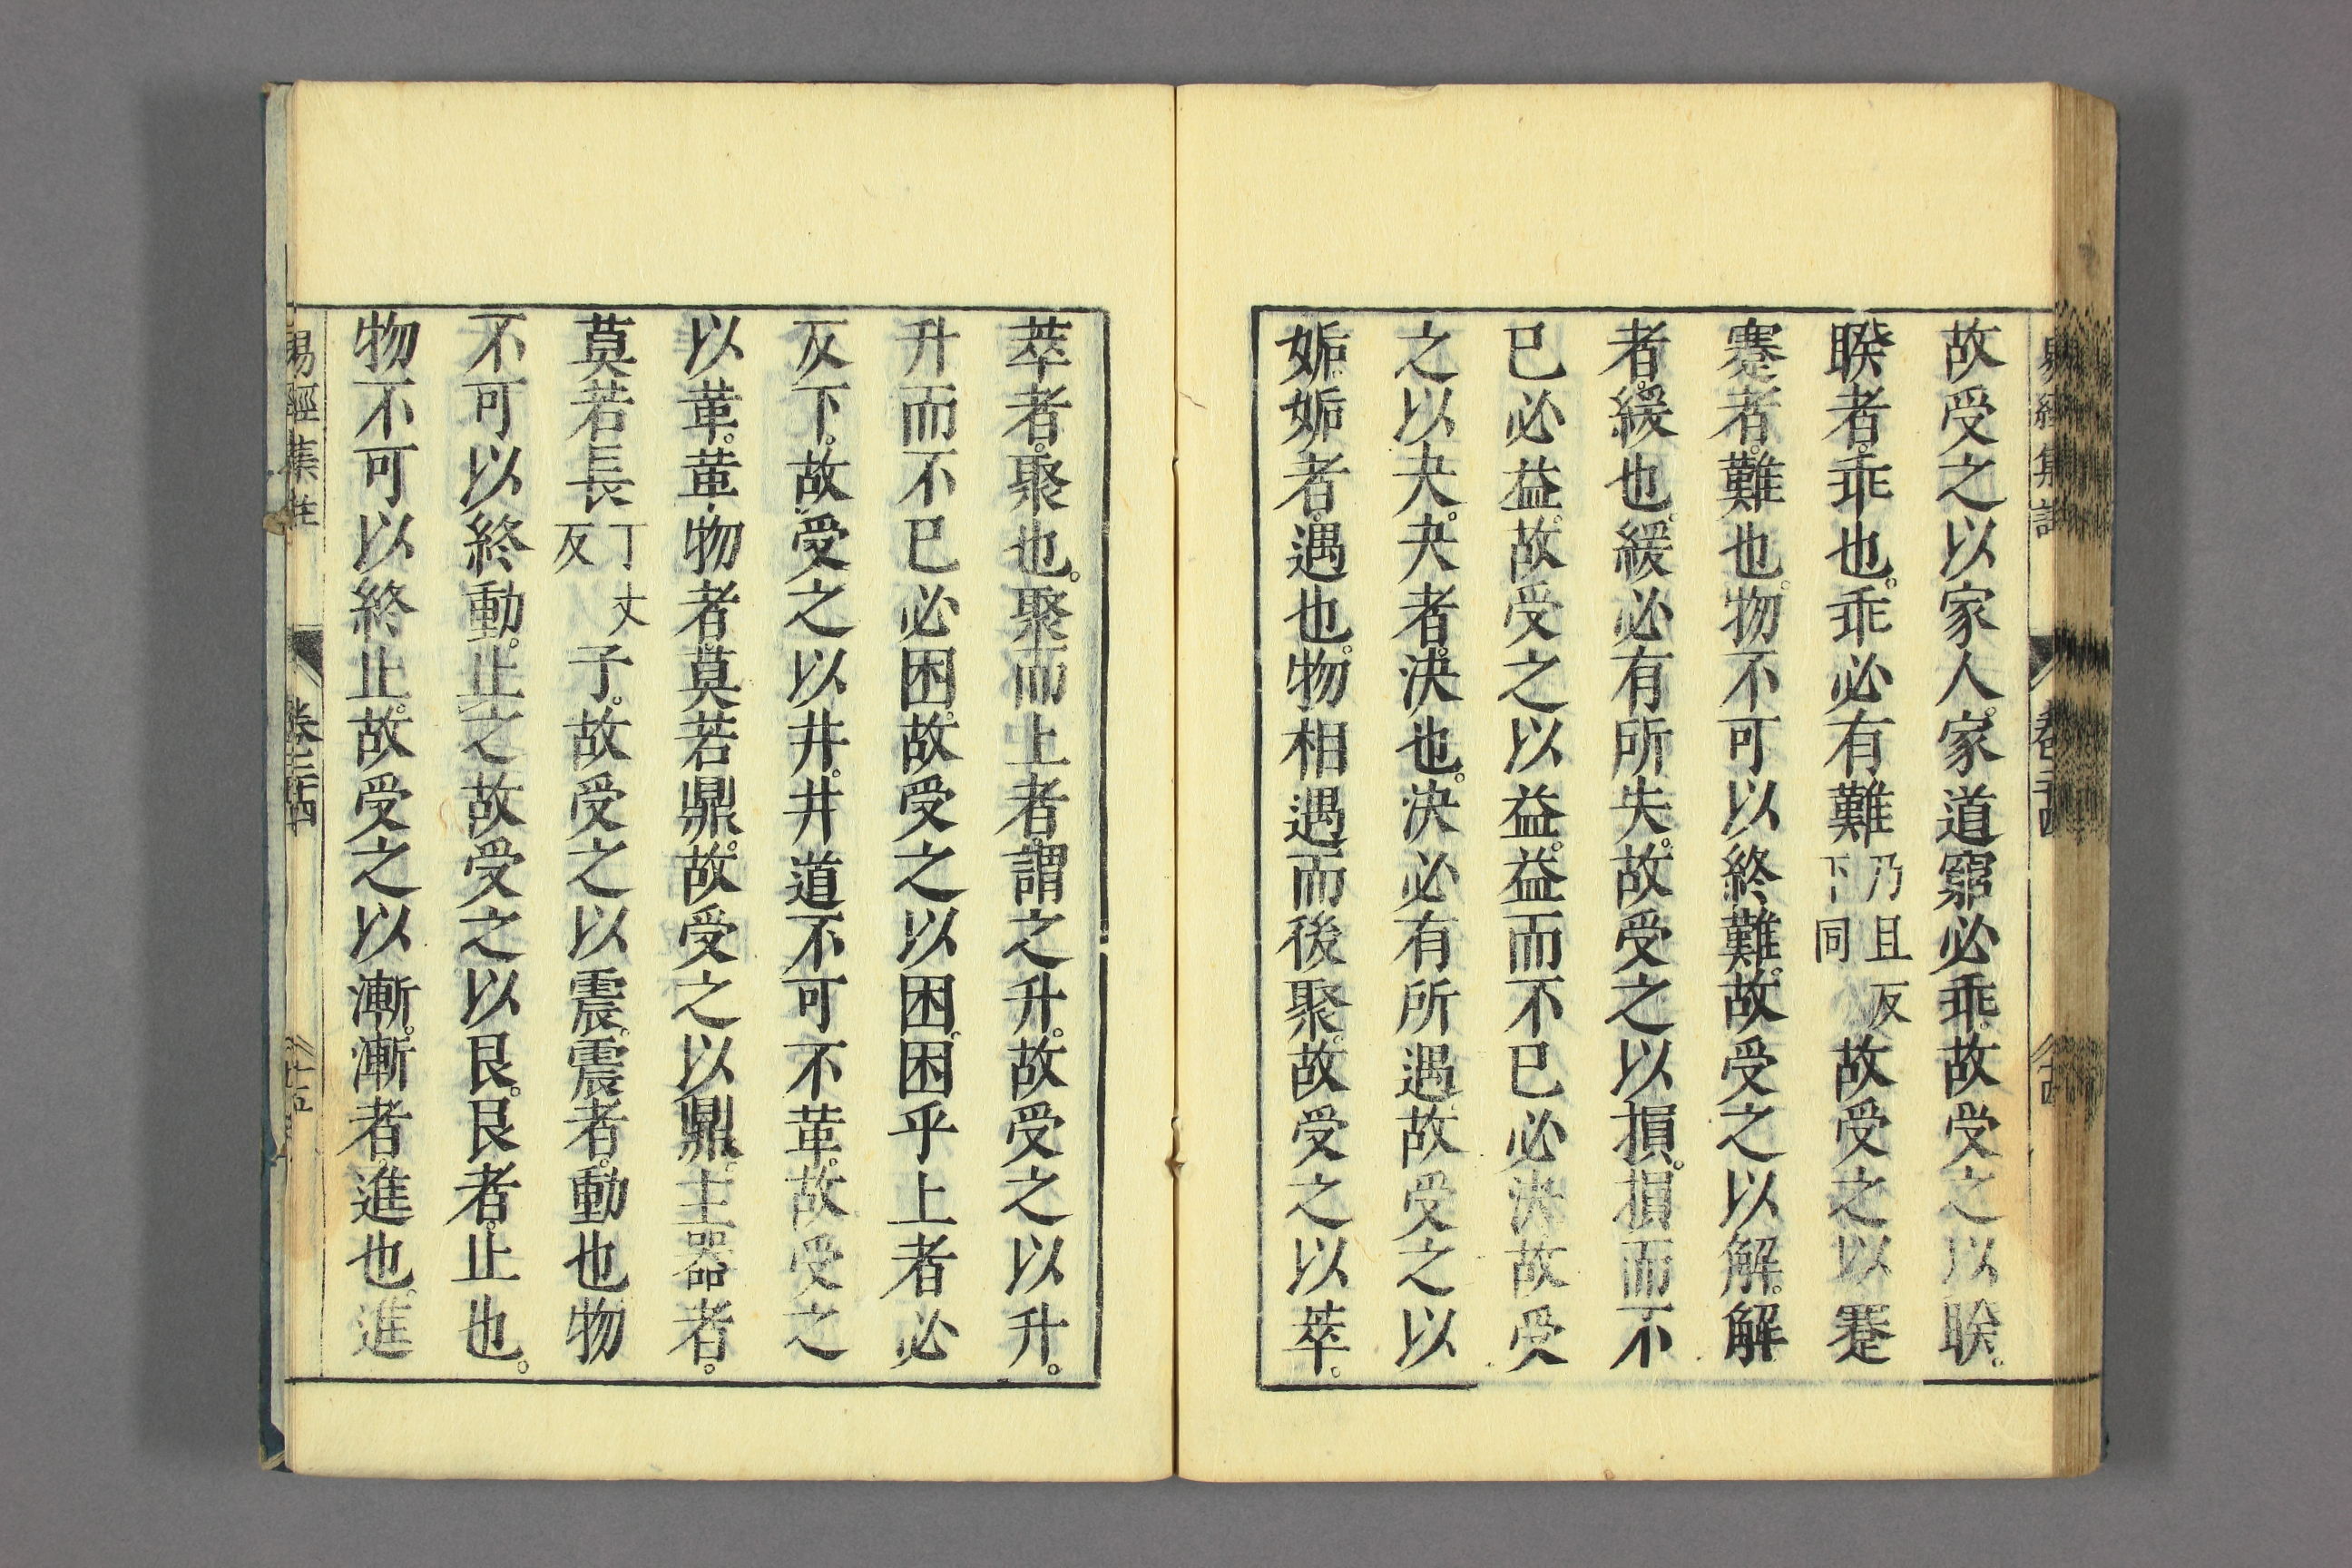 故受之以家人。家道窮必乖。故受之以睽。
睽者。乖也。乖必有難乃且反下同故受之以蹇
蹇者。難也。物不可以終難。故受之以解。解
者。緩也。緩必有所失。故受之以損。損而不
已必益。故受之以益。益而不已必決故受
之以夬。夬者。決也。決必有所遇故受之以
姤。姤者。遇也。物相遇而後聚。故受之以萃。
萃者。聚也。聚而上者。謂之升。故受之以升。
升而不已必困。故受之以困。困乎上者必
反下。故受之以井。井道不可不革。故受之
以革。革物者。莫若鼎。故受之以鼎。主器者。
莫若長丁丈反子。故受之以震。震者。動也物
不可以終動。止之故受之以艮。艮者。止也。
物不可以終止。故受之以漸。漸者。進也。進
易經集註 卷二十四